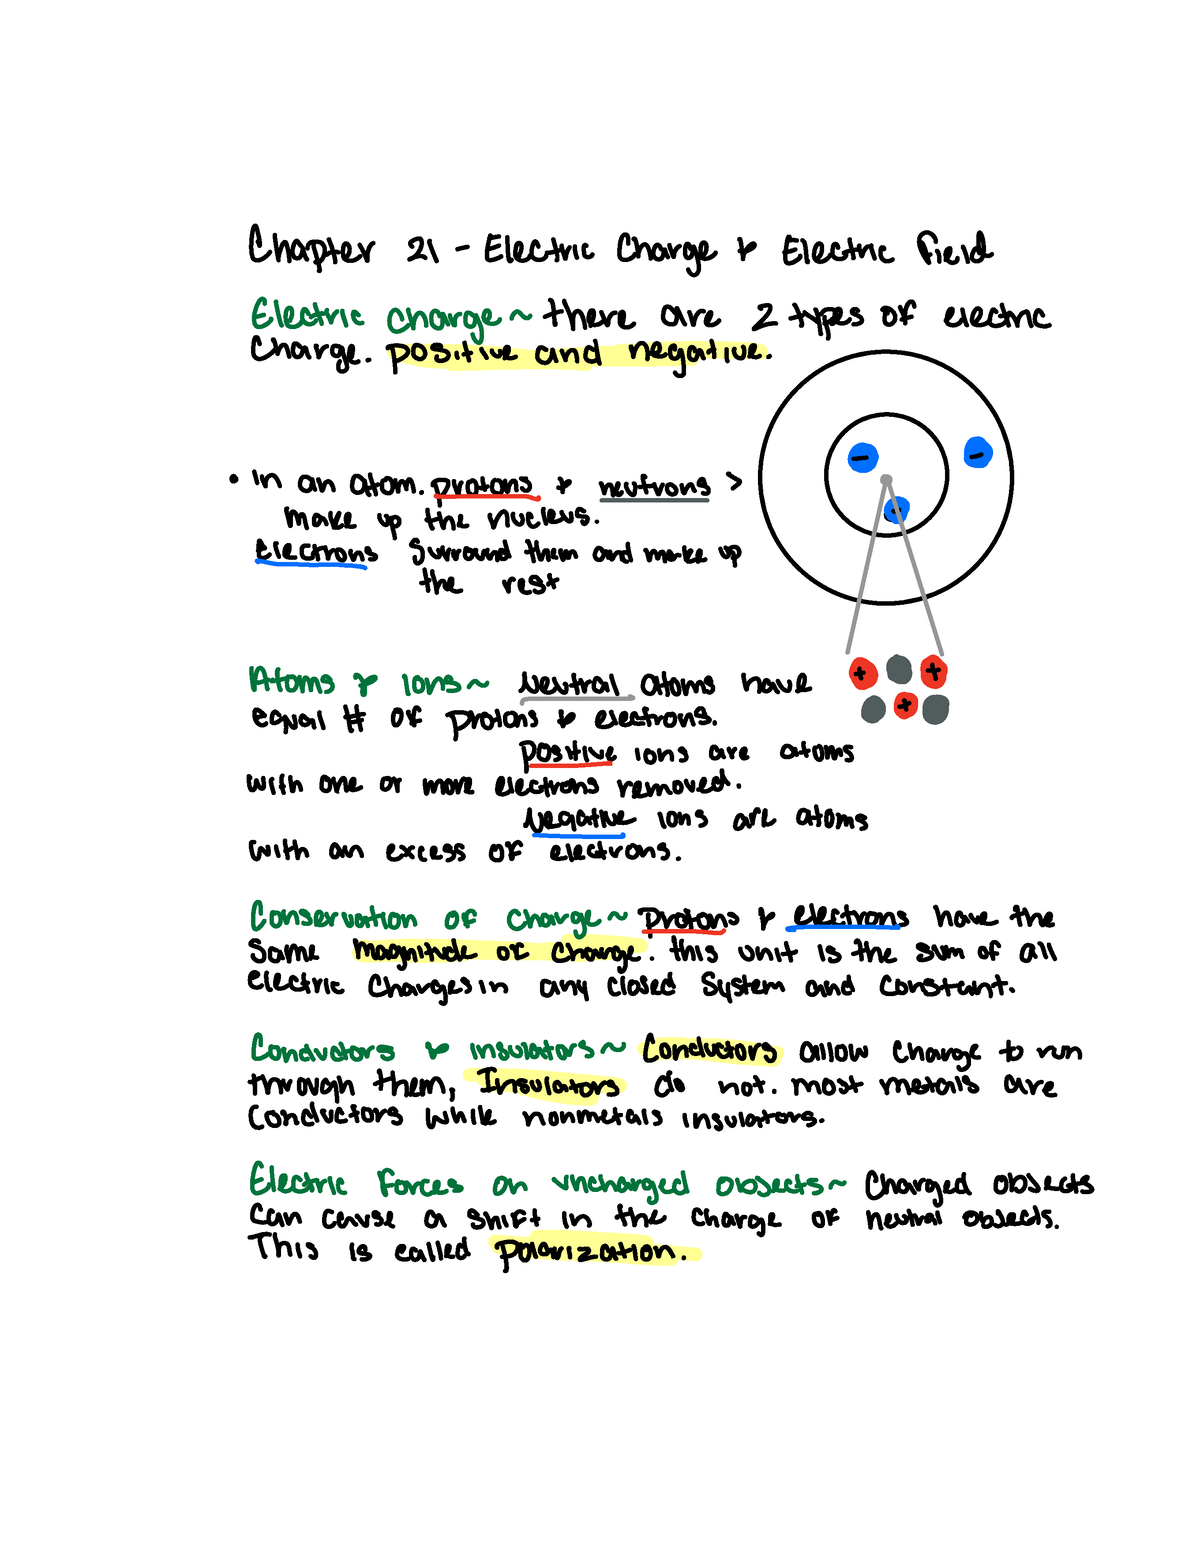 Chapter 21 - Electric Charge & Electric Field
Electric charge ~ there are 2 types of electric
charge. positive and negative.
• In an atom. protons & neutrons >
make up the nucleus.
electrons surround them and make up
the rest
-
-
-
+
+
+
Atoms & Ions ~ Neutral atoms have
equal # of protons & electrons.
positive ions are atoms
with one or more electrons removed.
Negative ions are atoms
with an excess of electrons.
Conservation of charge ~ protons & electrons have the
same magnitude of charge. this unit is the sum of all
electric charges in any closed system and constant.
Conductors & insulators ~ Conductors allow charge to run
through them, Insulators do not. most metals are
conductors while nonmetals insulators.
Electric Forces on uncharged objects ~ Charged objects
can cause a shift in the charge of neutral objects.
This is called polarization.